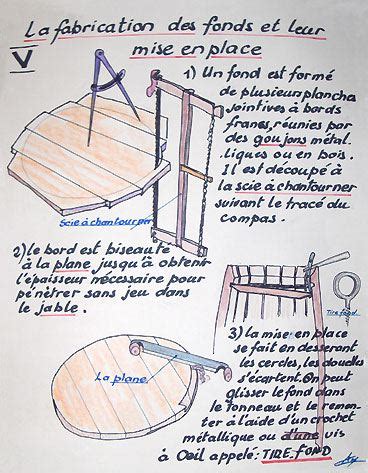 La fabrication des fonds et leur
mise en place
V
1) Un fond est formé
de plusieurs planches
jointives à bords
francs, réunies par
des goujons métal.
liques ou en bois.
Il est découpé à
la scie à chantourner
suivant le tracé du
compas.
Scie à chantourner
2) le bord est biseauté
à la plane jusqu'à obtenir
l'épaisseur nécessaire pour
pénétrer sans jeu dans
le jable.
Tire fond
La plane
3) la mise en place
se fait en desserant
les cercles, les douelles
s'écartent. On peut
glisser le fond dans
le tonneau et le remon-
ter à l'aide d'un crochet
métallique ou d'une vis
à Oeil appelé: TIRE.FOND